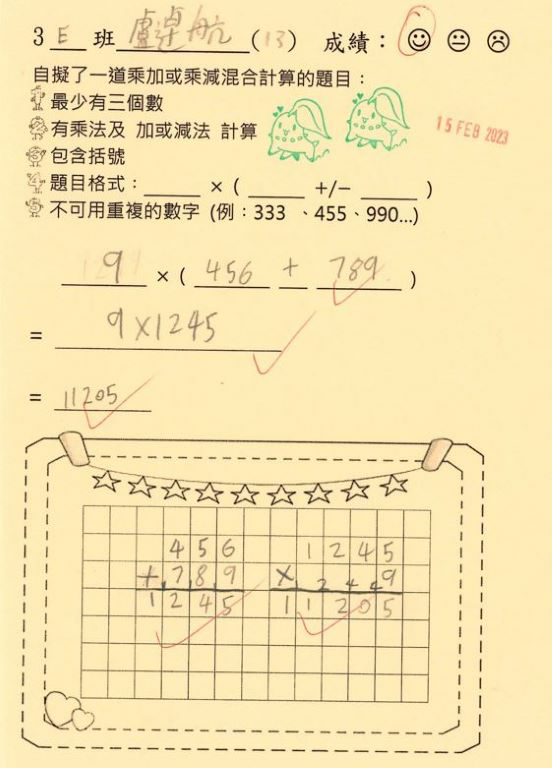 3 E 班 盧 航 (13) 成績：
自擬了一道乘加或乘減混合計算的題目：
1 最少有三個數
2 有乘法及 加或減法 計算
3 包含括號
4 題目格式：______ × ( ______ +/− ______ )
5 不可用重複的數字 (例：333 、455、990...)
15 FEB 2023
9 × ( 456 + 789 )
= 9×1245
= 11205
456 1245
+789 × 2 4 4 9
1245 11205